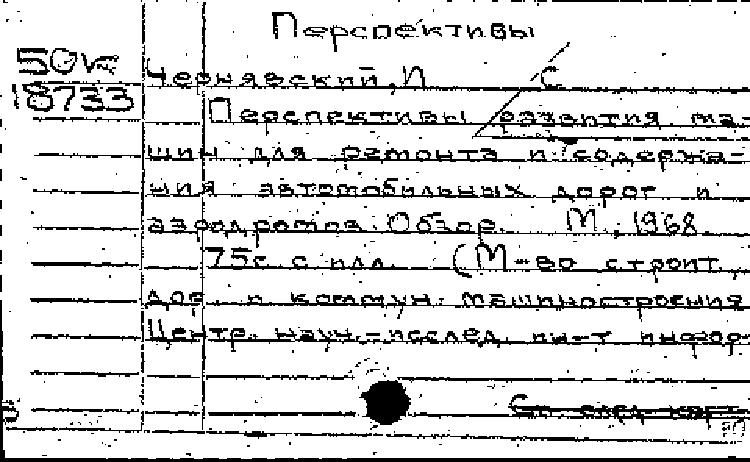 Перспективы
50к
Чернявский, И С
18733
Перспективы развития ма-
шин для ремонта и содержа-
ния автомобильных дорог и
аэродромов. Обзор. М., 1968.
75с. с илл. (М-во строит.,
дор. и коммун. машиностроения
Центр. науч.-исслед. ин-т инфор-
См. след. карт.